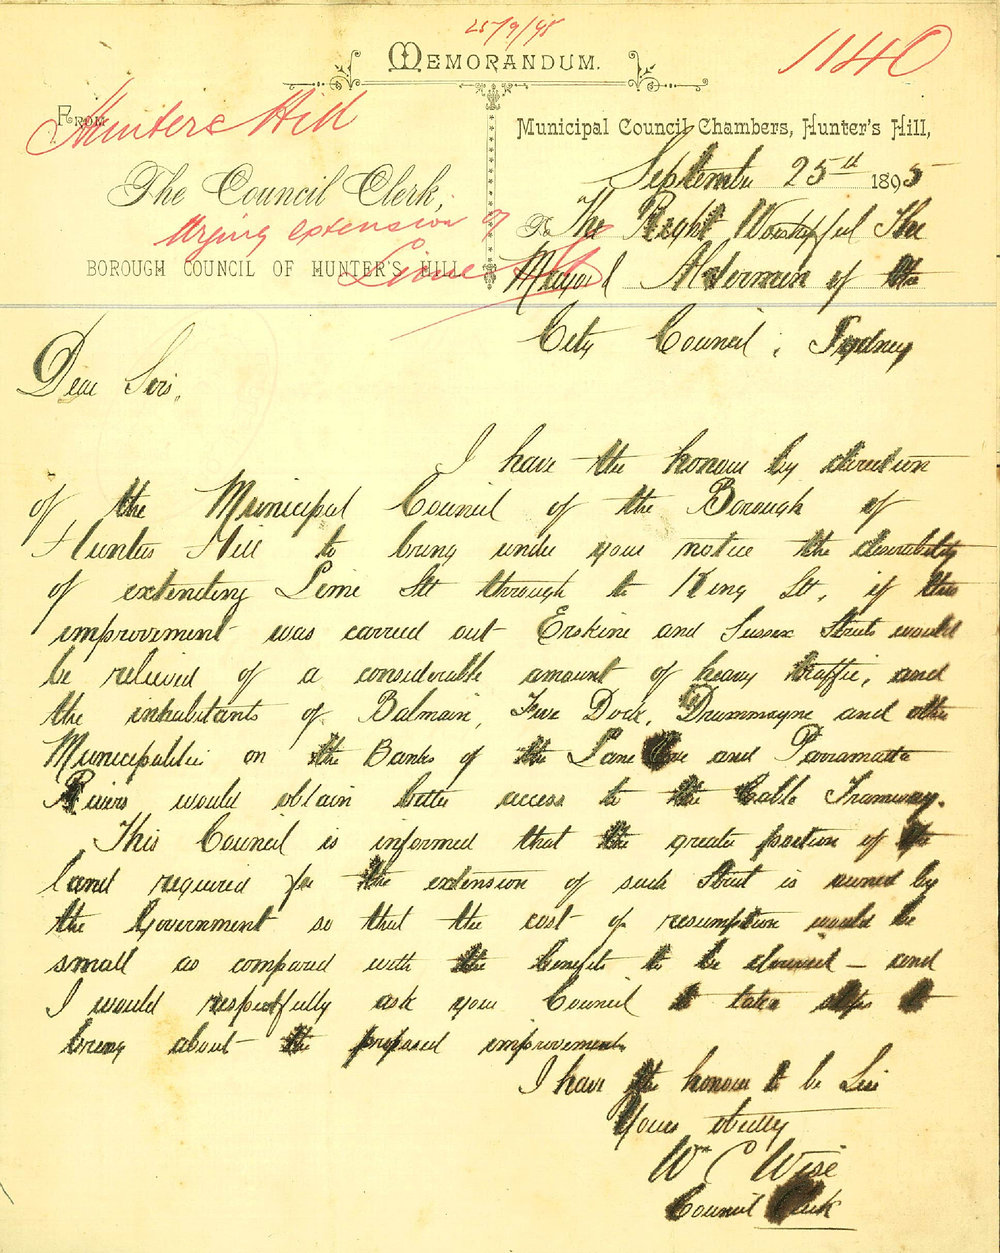 25/9/95
MEMORANDUM.
1140
FROM
Hunters Hill
Municipal Council Chambers, Hunter's Hill,
September 25th 1895
The Council Clerk,
Urging extension of
To The Right Worshipful The
BOROUGH COUNCIL OF HUNTER'S HILL
Lime St
Mayor & Aldermen of the
City Council, Sydney
Dear Sirs,
I have the honour by direction
of the Municipal Council of the Borough of
Hunters Hill to bring under your notice the desirability
of extending Lime St through to King St, if this
improvement was carried out Erskine and Sussex Streets would
be relieved of a considerable amount of heavy traffic, and
the inhabitants of Balmain, Five Dock, Drummoyne and other
Municipalities on the Banks of the Lane Cove and Parramatta
Rivers would obtain better access to the Cable Tramway.
This Council is informed that the greater portion of the
land required for the extension of such Street is owned by
the Government so that the cost of resumption would be
small as compared with the benefits to be derived – and
I would respectfully ask your Council to take steps to
bring about the proposed improvement.
I have the honour to be Sir
Yours obtly
Wm C Wise
Council Clerk